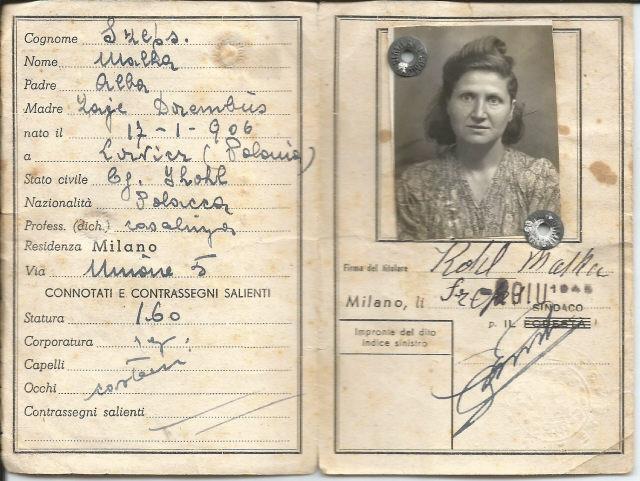 Cognome Szeps.
Nome Malka
Padre Alba
Madre Zaje Dorembus
nato il 17-1-906
a Lovicz (Polonia)
Stato civile Cg. Khohl
Nazionalità Polacca
Profess. (dich.) casalinga
Residenza Milano
Via Unione 5
CONNOTATI E CONTRASSEGNI SALIENTI
Statura 1.60
Corporatura
Capelli
Occhi castani
Contrassegni salienti
Firma del titolare Kohl Malka
Milano, li 1945
SINDACO
p. IL PODESTÀ
Impronte del dito
indice sinistro